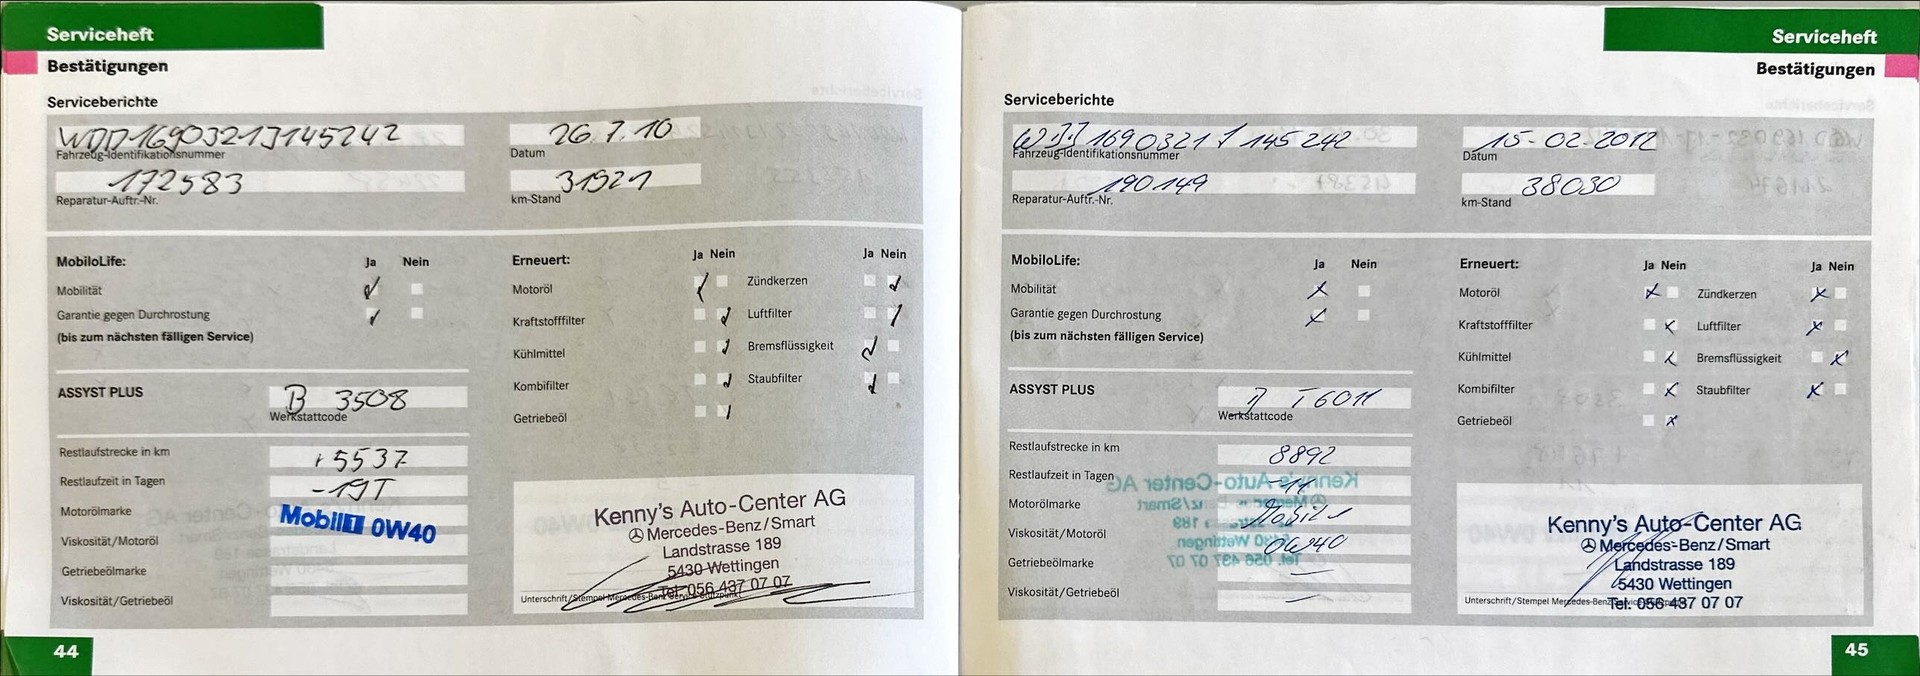 Serviceheft
Bestätigungen
Serviceberichte
WDD1690321J145242
Fahrzeug-Identifikationsnummer
26.7.10
Datum
172583
Reparatur-Auftr.-Nr.
31921
km-Stand
MobiloLife:
Ja Nein
Mobilität
Garantie gegen Durchrostung
(bis zum nächsten fälligen Service)
Erneuert:
Ja Nein
Ja Nein
Motoröl
Zündkerzen
Kraftstofffilter
Luftfilter
Kühlmittel
Bremsflüssigkeit
Kombifilter
Staubfilter
Getriebeöl
ASSYST PLUS
B 3508
Werkstattcode
Restlaufstrecke in km
+5537
Restlaufzeit in Tagen
-19T
Motorölmarke
Mobil 1 0W40
Viskosität/Motoröl
Getriebeölmarke
Viskosität/Getriebeöl
Kenny's Auto-Center AG
Mercedes-Benz/Smart
Landstrasse 189
5430 Wettingen
Tel. 056 437 07 07
Unterschrift/Stempel Mercedes-Benz Service-Stützpunkt
44
Serviceheft
Bestätigungen
Serviceberichte
WDD1690321J145242
Fahrzeug-Identifikationsnummer
15-02-2012
Datum
190149
Reparatur-Auftr.-Nr.
38030
km-Stand
MobiloLife:
Ja Nein
Mobilität
Garantie gegen Durchrostung
(bis zum nächsten fälligen Service)
Erneuert:
Ja Nein
Ja Nein
Motoröl
Zündkerzen
Kraftstofffilter
Luftfilter
Kühlmittel
Bremsflüssigkeit
Kombifilter
Staubfilter
Getriebeöl
ASSYST PLUS
Werkstattcode
Restlaufstrecke in km
8892
Restlaufzeit in Tagen
Motorölmarke
Mobil 1
Viskosität/Motoröl
0W40
Getriebeölmarke
Viskosität/Getriebeöl
Kenny's Auto-Center AG
Mercedes-Benz/Smart
Landstrasse 189
5430 Wettingen
Tel. 056 437 07 07
Unterschrift/Stempel Mercedes-Benz
45